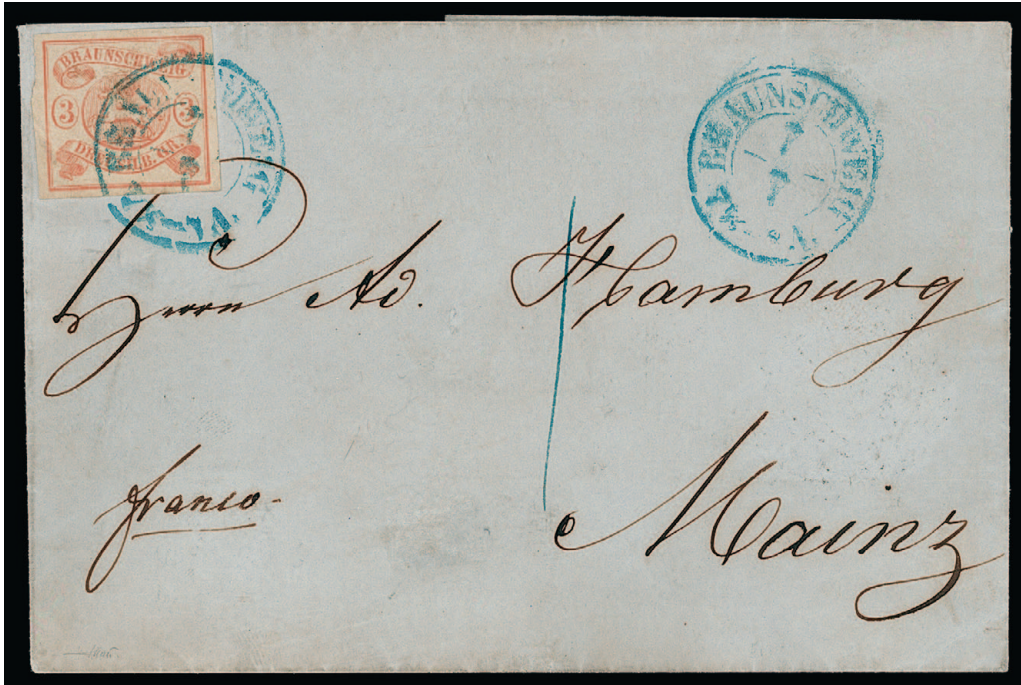 BRAUNSCHWEIG
3 3
DREI SILB. GR.
BRAUNSCHWEIG
BRAUNSCHWEIG
Herrn Ad. Hamburg
franco.
Mainz